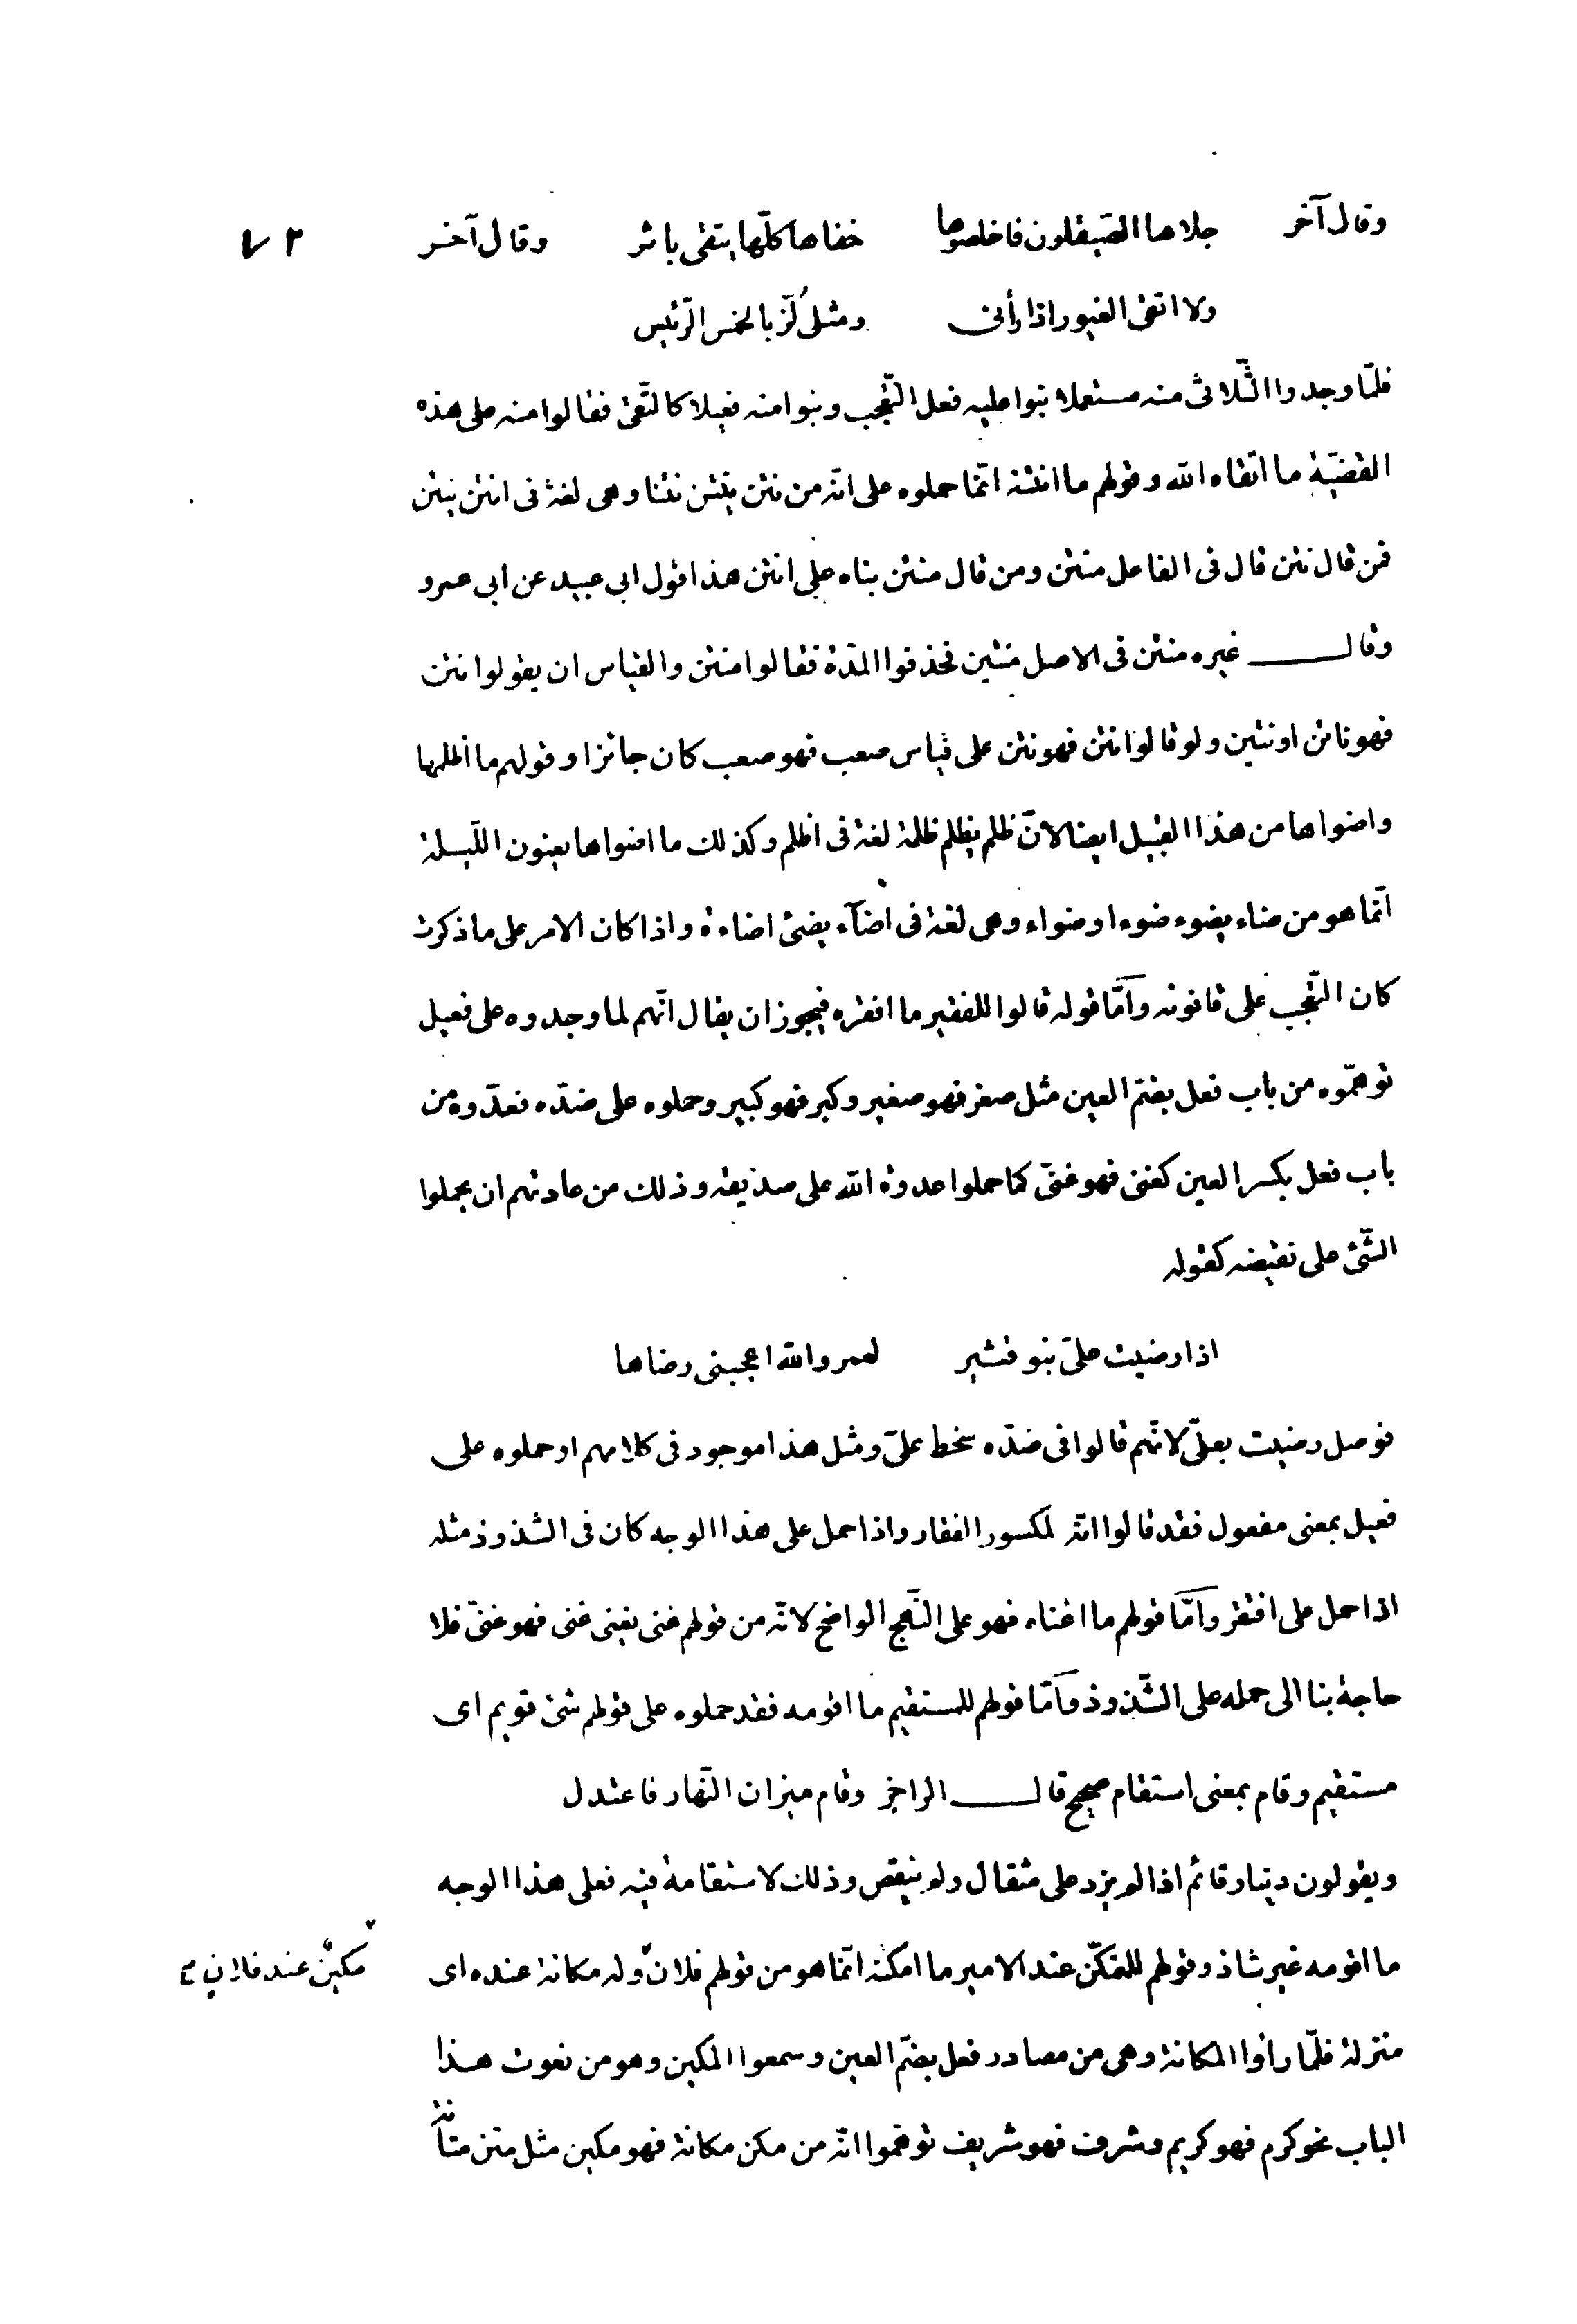 وقال آخر جلاها الصّيقلون فاخلصوها خفافا كلّها يتقى باثر وقال آخر ٧٢
ولا اتقى الغيور اذا رأنى ومثلى لُزّ بالحمس الرّئيس
فلمّا وجدوا الثّلاثى منه مستعملا بنوا عليه فعل التّعجب وبنوا منه فعيلا كالتّقى فقالوا منه على هذه
القضيّة ما اتقاه الله وقولهم ما انتنه انّما حملوه على انّه من نتن ينتن نتنا وهى لغة فى انتن ينتن
فمن قال نتن قال فى الفاعل منتن ومن قال منتن بناه على انتن هذا قول ابى عبيد عن ابى عمرو
وقال غيره منتن فى الاصل منتين فحذفوا المدّة فقالوا منتن والقياس ان يقولوا نتن
فهو ناتن او نتين ولو قالوا نتن فهو نتن على قياس صعب فهو صعب كان جائزا وقولهم ما اظلمها
واضواها من هذا القبيل ايضا لانّ ظلم يظلم ظلمة لغة فى اظلم وكذلك ما اضواها يعنون اللّيلة
انّما هو من ضاء يضوء ضوءا وضواء وهى لغة فى اضآء يضئ اضاءة واذا كان الامر على ما ذكرت
كان التّعجب على قانونه وامّا قوله قالوا للفقير ما افقره فيجوز ان يقال انّهم لما وجدوه على فعيل
توهّموه من باب فعل بضمّ العين مثل صغر فهو صغير وكبر فهو كبير وحملوه على ضدّه فعدّوه من
باب فعل بكسر العين كغنى فهو غنىّ كما حملوا عدوة الله على صديقه وذلك من عادتهم ان يحملوا
الشّئ على نقيضه كقوله
اذا رضيت علىّ بنو قشير لعمر والله اعجبنى رضاها
فوصل رضيت بعلىّ لانّهم قالوا فى ضدّه سخط علىّ ومثل هذا موجود فى كلامهم او حملوه على
فعيل بمعنى مفعول فقد قالوا انّه لمكسور الفقار واذا حمل على هذا الوجه كان فى الشذوذ مثله
اذا حمل على افتقر وامّا قولهم ما اغناه فهو على النّهج الواضح لانّه من قولهم غنى يغنى غنى فهو غنىّ فلا
حاجة بنا الى حمله على الشّذوذ وامّا قولهم للمستقيم ما اقومه فقد حملوه على قولهم شئ قويم اى
مستقيم وقام بمعنى استقام صحيح قال الراجز وقام ميزان النّهار فاعتدل
ويقولون دينار قائم اذا لم يزد على مثقال ولم ينقص وذلك لاستقامة فيه فعلى هذا الوجه
ما اقومه غير شاذ وقولهم للمتمكّن عند الامير ما امكنه انّما هو من قولهم فلان وله مكانة عنده اى
مكينٌ عند فلان
منزلة فلمّا رأوا المكانة وهى من مصادر فعل بضمّ العين وسمعوا المكين وهو من نعوت هذا
الباب نحو كرم فهو كريم وشرف فهو شريف توهّموا انّه من مكن مكانة فهو مكين مثل متن متانة